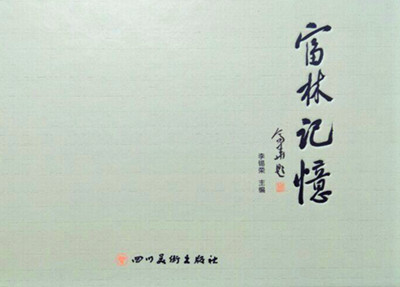 富林记憶
李锡荣 主编
四川美术出版社